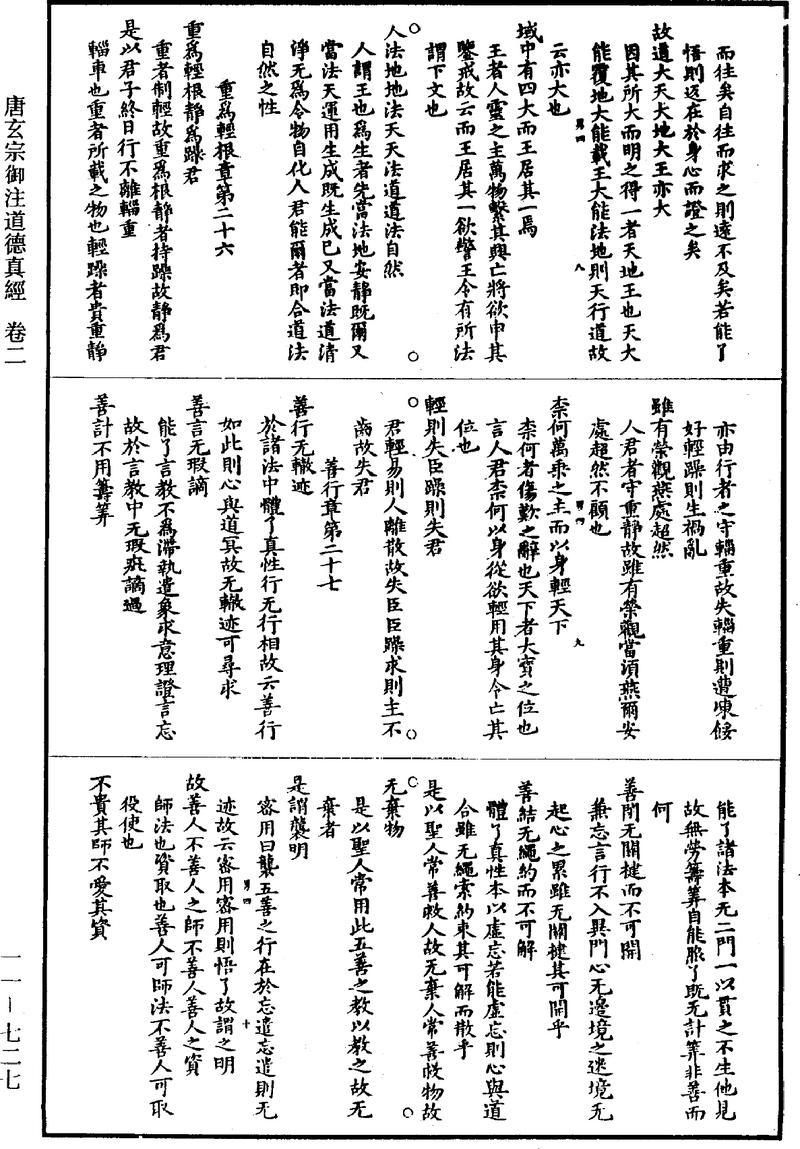 而往矣自往而求之則遠不及矣若能了
悟則返在於身心而證之矣
故道大天大地大王亦大
因其所大而明之得一者天地王也天大
能覆地大能載王大能法地則天行道故
云亦大也
域中有四大而王居其一焉
王者人靈之主萬物繫其興亡將欲申其
鑒戒故云而王居其一欲警王令有所法
謂下文也
人法地地法天天法道道法自然
人謂王也為生者先當法地安靜既爾又
當法天運用生成既生成已又當法道清
淨无為令物自化人君能爾者即合道法
自然之性
重為輕根章第二十六
重為輕根靜為躁君
重者制輕故重為根靜者持躁故靜為君
是以君子終日行不離輜重
輜車也重者所載之物也輕躁者貴重靜
亦由行者之守輜重故失輜重則遭凍餒
好輕躁則生禍亂
雖有榮觀燕處超然
人君者守重靜故雖有榮觀當須燕爾安
處超然不顧也
柰何萬乘之主而以身輕天下
柰何者傷歎之辭也天下者大寶之位也
言人君柰何以身從欲輕用其身令亡其
位也
輕則失臣躁則失君
君輕易則人離散故失臣臣躁求則主不
齒故失君
善行章第二十七
善行无轍迹
於諸法中體了真性行无行相故云善行
如此則心與道冥故无轍迹可尋求
善言无瑕讁
能了言教不為滯執遣象求意理證言忘
故於言教中无瑕疵讁過
善計不用籌筭
能了諸法本无二門一以貫之不生他見
故無勞籌筭自能照了既无計筭非善而
何
善閉无關楗而不可開
兼忘言行不入異門心无邊境之迷境无
起心之累雖无關楗其可開乎
善結无繩約而不可解
體了真性本以虛忘若能虛忘則心與道
合雖无繩索約束其可解而散乎
是以聖人常善救人故无棄人常善救物故
无棄物
是以聖人常用此五善之教以教之故无
棄者
是謂襲明
密用曰襲五善之行在於忘遣忘遣則无
迹故云密用密用則悟了故謂之明
故善人不善人之師不善人善人之資
師法也資取也善人可師法不善人可取
役使也
不貴其師不愛其資
唐玄宗御注道德真經 卷二
一一－七二七